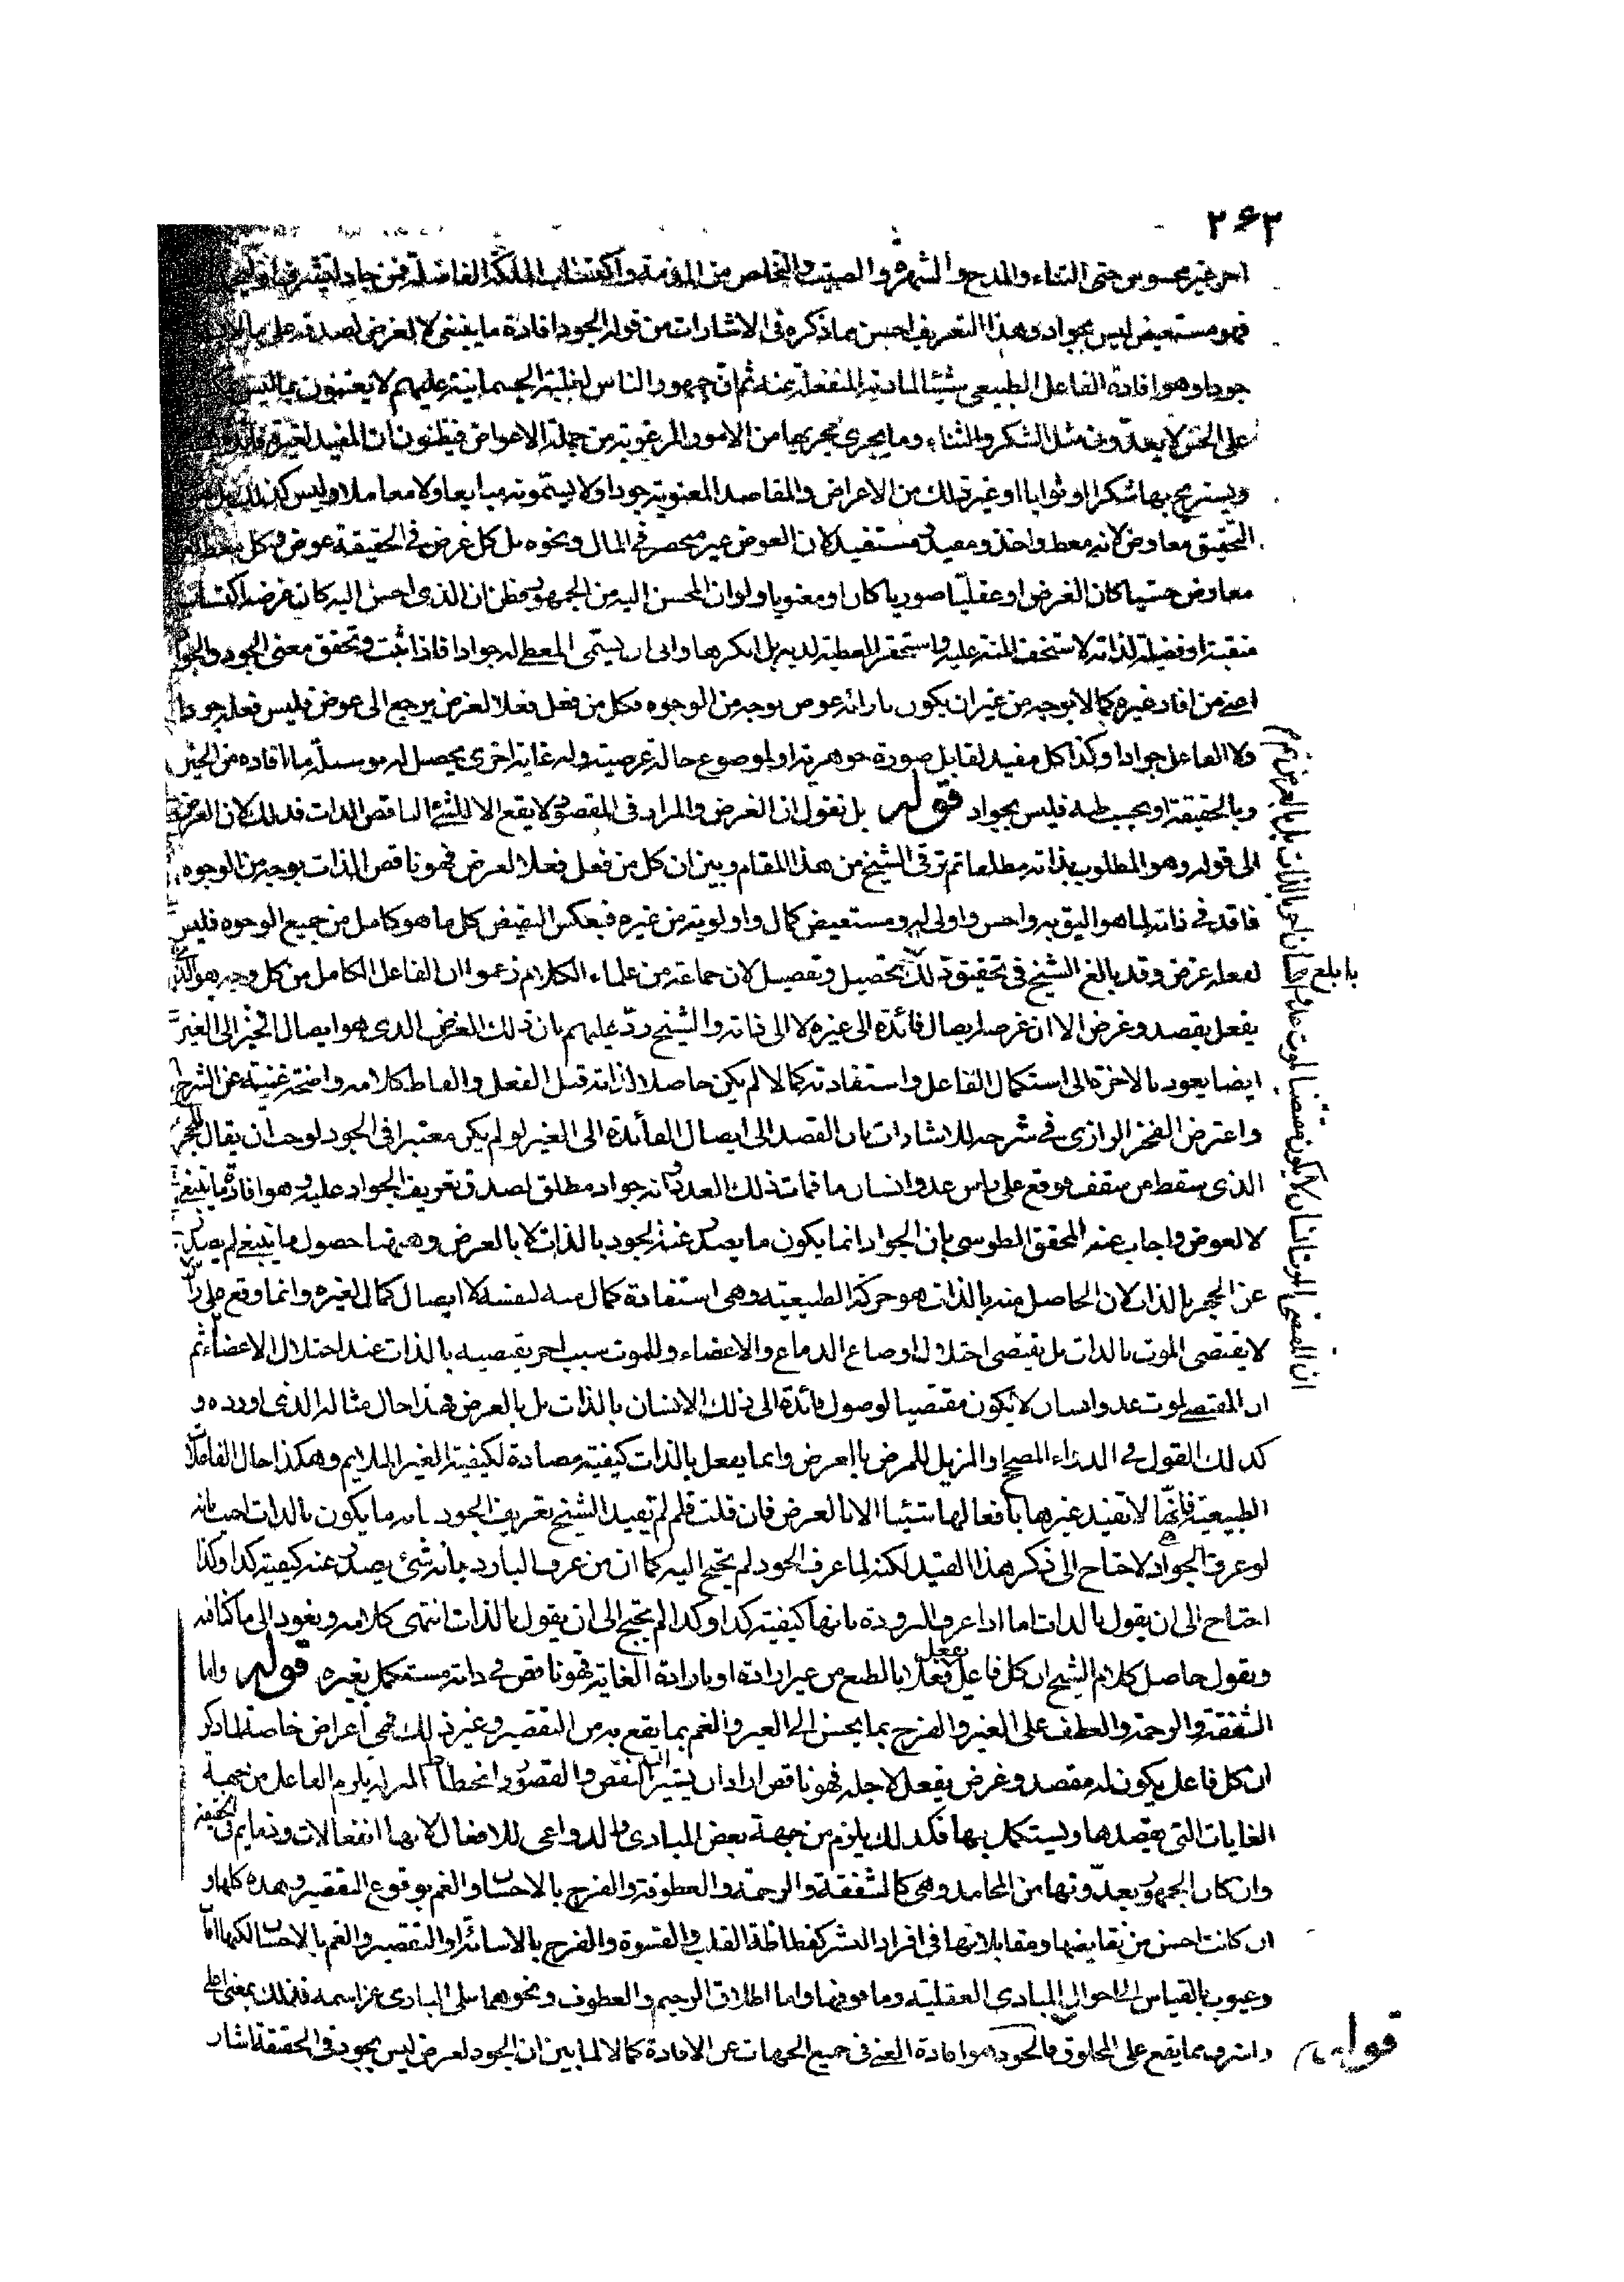 ٢٦٣
اخر غير محسوس حتى الثناء والمدح والشهرة والصيت والتخلص من المذمة واكتساب الملكة الفاضلة فمن جاد ليشرف او
فهو مستعيض ليس بجواد وهذا التعريف احسن مما ذكره فى الاشارات من قوله الجود افادة ما ينبغى لا لغرض لصدقه على ما
جودا وهو افادة الفاعل الطبيعى شيئا لمادته المنفعلة عنه ثم ان جمهور الناس لغلبة الجسمانية عليهم لا يعتنون بما ليس
على الحس لا يعدّون مثل الشكر والثناء وما يجرى مجريها من الامور المرغوبة من جملة الاعواض فيظنون ان المفيد لغيره فائدة
ويستربح بها شكرا او ثوابا او غير ذلك من الاعراض والمقاصد المعنوية جوادا ولا يسمونه مبايعا ولا معاملا وليس كذلك بل
التحقيق معاوض لانه معط واخذ ومفيد مستفيد لان العوض غير منحصر فى المال ونحوه بل كل غرض فى الحقيقة عوض فكل معط
معاوض حسيا كان الغرض او عقليّا صوريا كان او معنويا ولو ان المحسن اليه من الجمهور يفطن ان الذى احسن اليه كان غرضه اكتساب
منقبة او فضيلة لذاته لاستخف المنة عليه واستحقر العطية لديه بل انكرها وابى ان يسمّى المعطى له جوادا فاذا ثبت وتحقق معنى الجود والجواد
اعنى من افاد غيره كمالا بوجه من غير ان يكون بازائه عوض بوجه من الوجوه فكل من فعل فعلا لغرض يرجع الى عوض فليس فعله جودا
ولا الفاعل جوادا وكذا كل مفيد لقابل صورة جوهرية او لموضوع حالة عرضية وله غاية اخرى يحصل له بوسيلة ما افاده من الخير
وبالحقيقة او بحسب ظنه فليس بجواد قوله بل نقول ان الغرض والمراد فى المقصود لا يقع الا للشئ الناقص الذات فذلك لان الغرض
الى قوله وهو المطلوب بذاته مطلقا ثم ترقى الشيخ من هذا المقام وبين ان كل من فعل فعلا لغرض فهو ناقص الذات بوجه من الوجوه
فاقد فى ذاته لما هو اليق به واحسن واولى له ومستعيض كمال واولوية من غيره فبعكس النقيض كل ما هو كامل من جميع الوجوه فليس
لفعله غرض وقد بالغ الشيخ فى تحقيق ذلك بتحصيل وتفصيل لان جماعة من علماء الكلام زعموا ان الفاعل الكامل من كل وجه هو الذى
يفعل بقصد وغرض الا ان غرضه ايصال فائدة الى غيره لا الى ذاته والشيخ ردّ عليهم بان ذلك الغرض الذى هو ايصال الخير الى الغير
ايضا يعود بالاخرة الى استكمال الفاعل واستفادته كمالا لم يكن حاصلا لذاته قبل الفعل والفاظ كلامه واضحة غنية عن الشرح
واعترض الفخر الرازى فى شرحه للاشارات بان القصد الى ايصال الفائدة الى الغير لو لم يكن معتبرا فى الجود لوجب ان يقال للحجر
الذى سقط من سقف فوقع على راس عدو انسان ما فمات ذلك العدو انه جواد مطلق لصدق تعريف الجواد عليه وهو افادة ما ينبغى
لا لعوض واجاب عنه المحقق الطوسى بان الجواد انما يكون ما يصدر عنه الجود بالذات لا بالعرض وههنا حصول ما ينبغى لم يصدر
عن الحجر بالذات لان الحاصل منه بالذات هو حركته الطبيعية وهى استفادة كمال منه لنفسه لا ايصال كمال لغيره وانما وقع على راس
لا يقتضى الموت بالذات بل يقتضى اختلال اوضاع الدماغ والاعضاء وللموت سبب اخر يقتضيه بالذات عند اختلال الاعضاء ثم
ان المقتضى لموت عدو انسان لا يكون مقتضيا لوصول فائدة الى ذلك الانسان بالذات بل بالعرض فهذا حال مثاله الذى اورده و
كذلك القول فى الدواء المصح او المزيل للمرض بالعرض وانما يفعل بالذات كيفية مضادة لكيفية الغير الملايم وهكذا حال الفاعلات
الطبيعية فانّها لا تفيد غيرها بافعالها شيئا الا بالعرض فان قلت فلم لم يقيد الشيخ تعريف الجود بانه ما يكون بالذات اجيب بانه
لو عرف الجواد لاحتاج الى ذكر هذا القيد لكنه لما عرف الجود لم يحتج اليه كما ان من عرف البارد بانه شئ يصدر عنه كيفية كذا وكذا
احتاج الى ان يقول بالذات اما اذا عرف البرودة بانها كيفية كذا وكذا لم يحتج الى ان يقول بالذات انتهى كلامه ونعود الى ما كنا فيه
ونقول حاصل كلام الشيخ ان كل فاعل يفعل فعلا بالطبع من غير ارادة او بارادة الغاية فهو ناقص فى ذاته مستكمل بغيره قوله واما
الشفقة والرحمة والعطف على الغير والفرح بما يحسن الى الغير والغم بما يقع به من التقصير وغير ذلك فهى اغراض خاصة لما ذكر
ان كل فاعل يكون له مقصد وغرض يفعل لاجله فهو ناقص اراد ان يشير الى النقص والقصور وانحطاط المنزلة يلزم الفاعل من جهة
الغايات التى يقصدها ويستكمل بها فكذلك يلزم من جهة بعض المبادى والدواعى للافعال لانها انفعالات وذمايم فى الحقيقة
وان كان الجمهور يعدّونها من المحامد وهى كالشفقة والرحمة والعطوفة والفرح بالاحسان والغم بوقوع التقصير وهذه كلها و
ان كانت احسن من نقايضها ومقابلاتها فى افراد البشر كفظاظة القلب والقسوة والفرح بالاسائة او التقصير والغم بالاحسان لكنها
وعيوب بالقياس الى احوال المبادى العقلية وما فوقها واما اطلاق الرحيم والعطوف ونحوهما على البارى عز اسمه فذلك بمعنى اعلى
واشرف مما يقع على المخلوق فالجود هو افادة الغير فى جميع الجهات عن الافادة كمالا لما بين ان الجود لعوض ليس بجود فى الحقيقة اشار
قوله
ان المقتضى لموت انسان لا يكون مقتضيا لموت
بل بالعرض
بابلغ